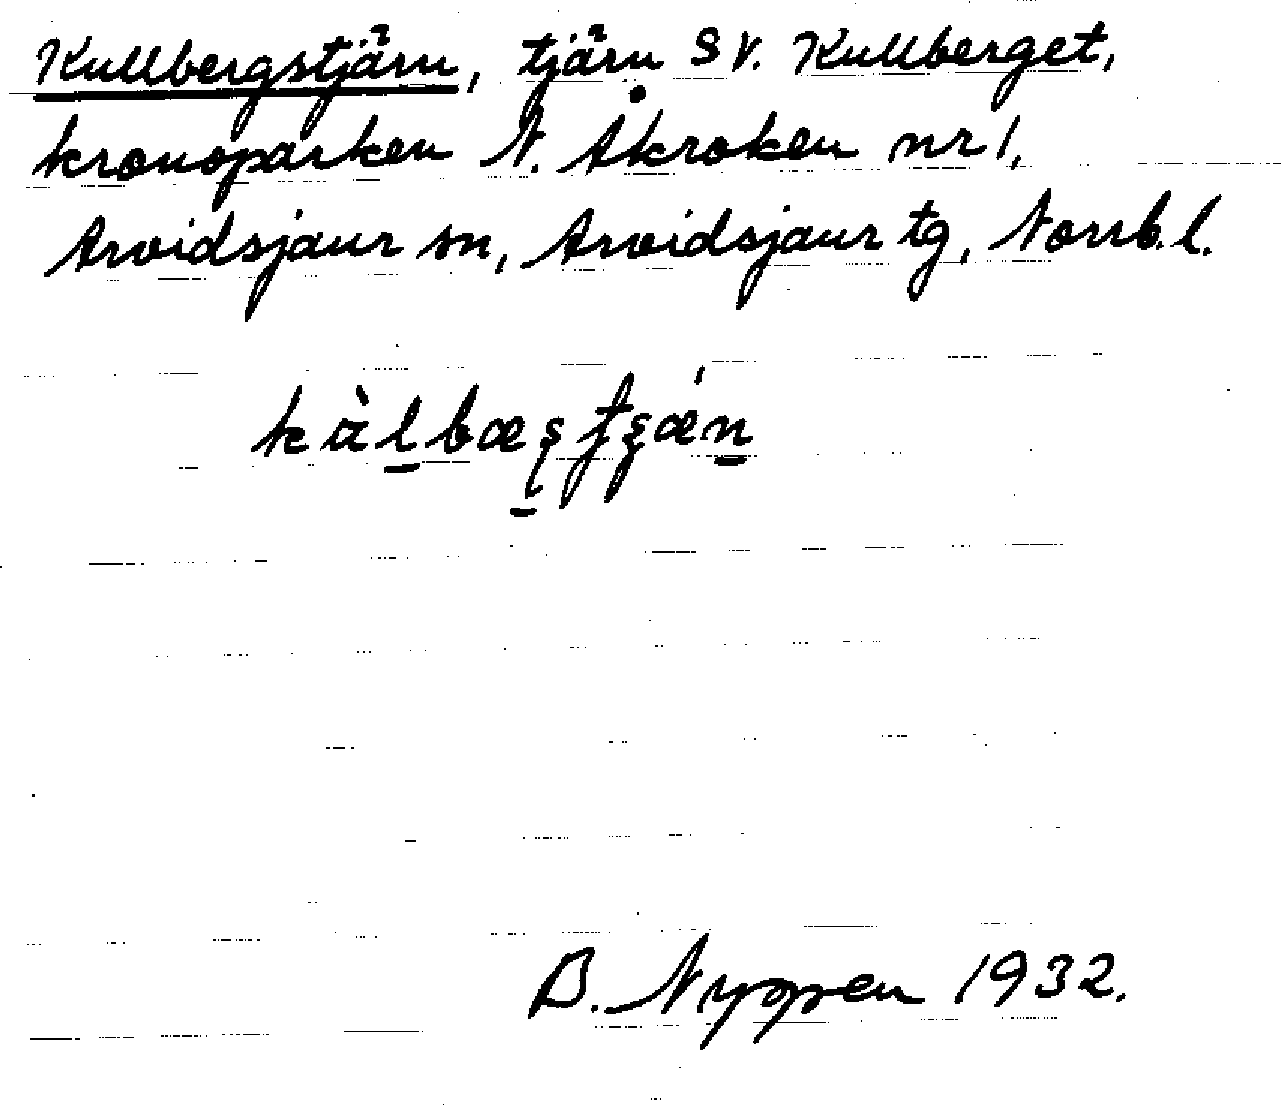 Kullbergstjärn, tjärn SV. Kullberget,
kronoparken N. Åkroken nr 1,
Arvidsjaur sn, Arvidsjaur tg, Norrb. l.
B. Nygren 1932.